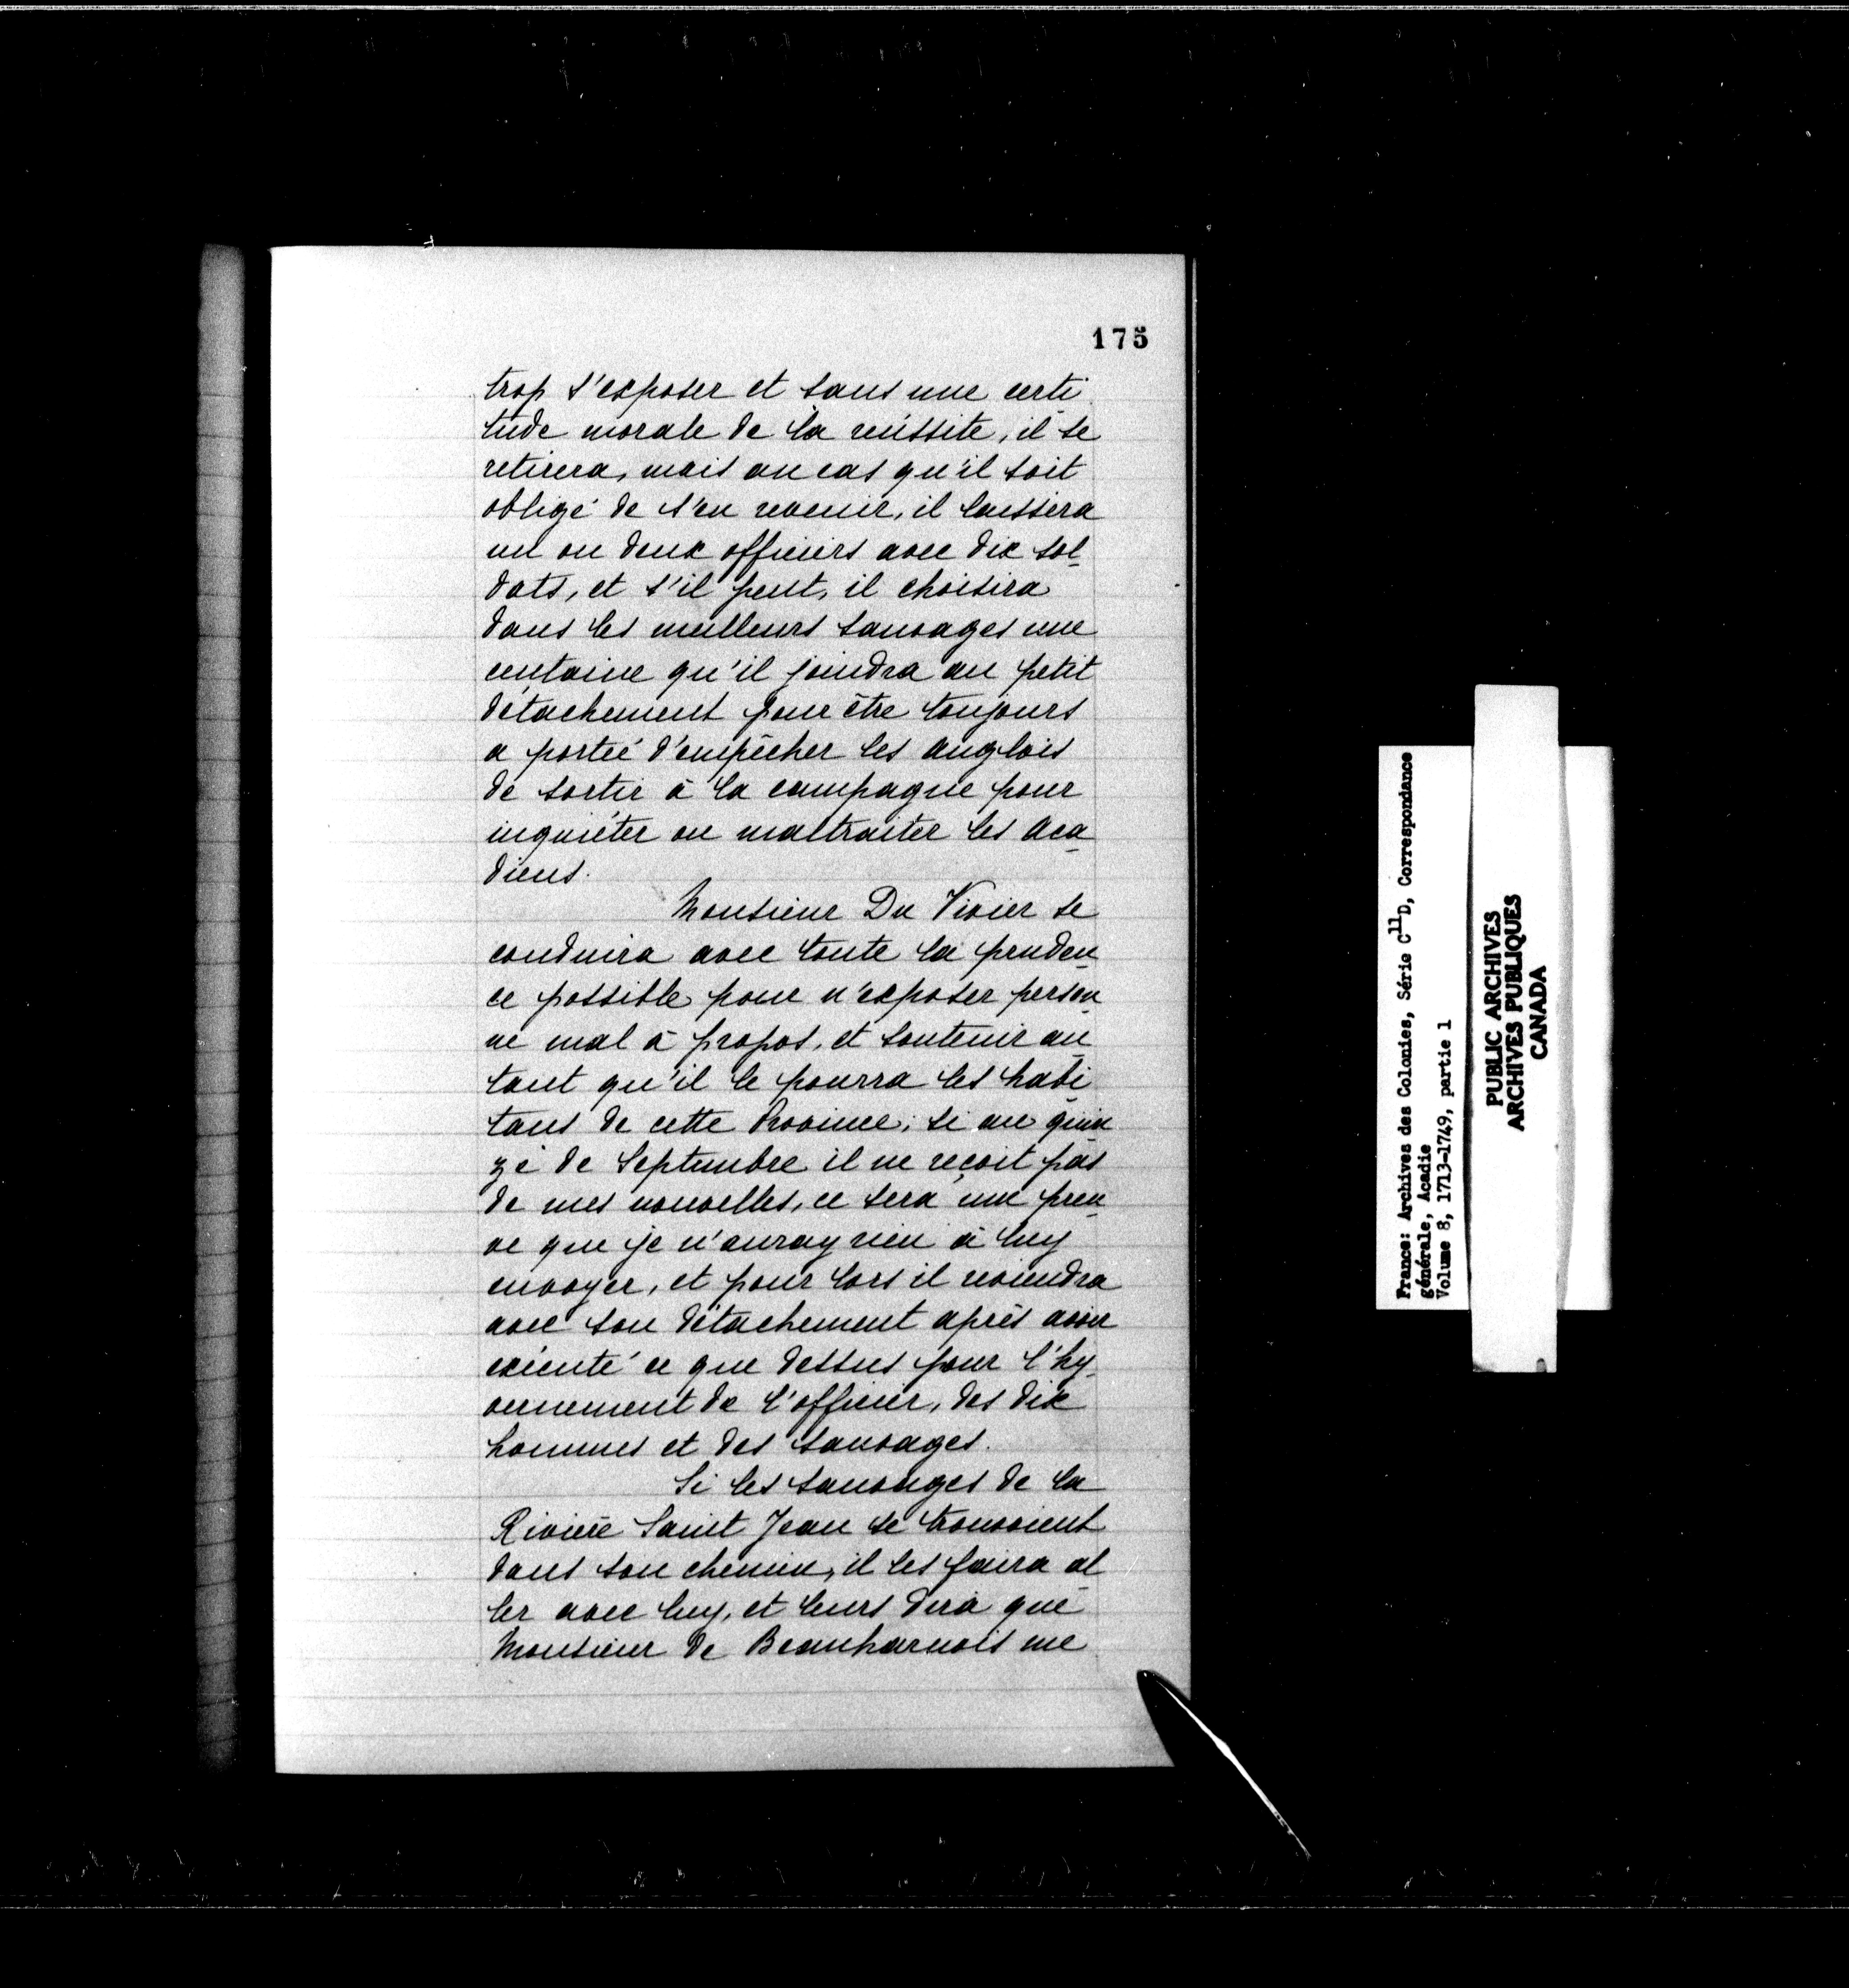 175
trop s'exposer et sans une certi
tude morale de la réüssite, il se
retirera, mais au cas qu'il soit
obligé de s'en revenir, il laissera
un ou deux officiers avec dix sol
dats, et s'il peut, il choisira
dans les meilleurs sauvages une
centaine qu'il joindra au petit
détachement pour être toujours
a porteé d'empêcher les anglois
de sortir à la campagne pour
inquiéter ou maltraiter les aca
diens.
Monsieur Du Vivier se
conduira avec toute la pruden
ce possible pour n'exposer person
ne mal à propos, et soutenir au
tant qu'il le pourra les habi
tans de cette Province; si au quin
ze de Septembre il ne reçoit pas
de mes nouvelles, ce sera une preu
ve que je n'auray rien à luy
envoyer, et pour lors il reviendra
avec son détachement après avoir
exécuté ce que dessus pour l'hy
vernement de l'officier, des dix
hommes et des sauvages.
Si les sauvages de la
Rivière Saint Jean se trouvoient
dans son chemin, il les faira al
ler avec luy, et leurs dira que
Monsieur de Beauharnois me
France: Archives des Colonies, Série C11D, Correspondance
générale, Acadie
Volume 8, 1713-1749, partie 1
PUBLIC ARCHIVES
ARCHIVES PUBLIQUES
CANADA